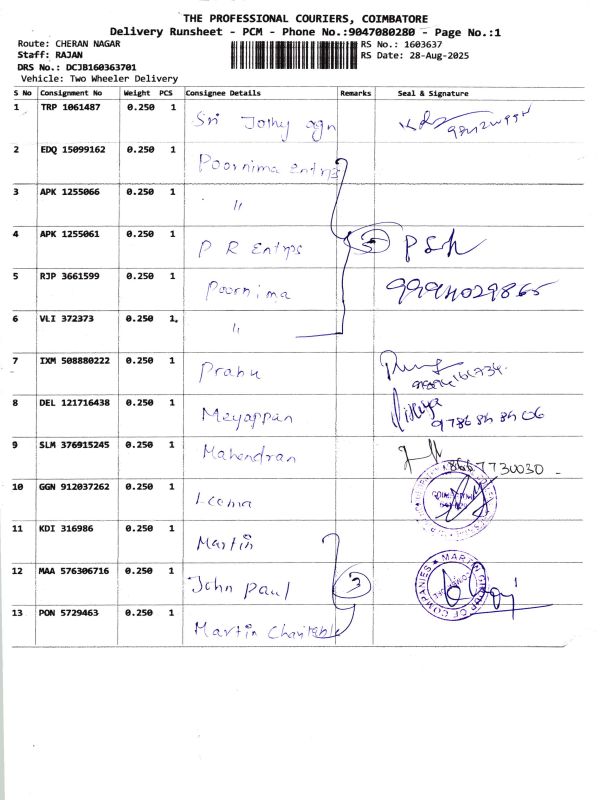 THE PROFESSIONAL COURIERS, COIMBATORE
Delivery Runsheet - PCM - Phone No.:9047080280 - Page No.:1
Route: CHERAN NAGAR RS No.: 1603637
Staff: RAJAN RS Date: 28-Aug-2025
DRS No.: DCJB160363701
Vehicle: Two Wheeler Delivery
S No Consignment No Weight PCS Consignee Details Remarks Seal & Signature
1 TRP 1061487 0.250 1 Sri Jothy agn
2 EDQ 15099162 0.250 1 Poornima entrps
3 APK 1255066 0.250 1 "
4 APK 1255061 0.250 1 P R Entrps 5
5 RJP 3661599 0.250 1 Poornima 9994029865
6 VLI 372373 0.250 1 "
7 IXM 508880222 0.250 1 Prabu
8 DEL 121716438 0.250 1 Meyappan
9 SLM 376915245 0.250 1 Mahendran 8667730030
10 GGN 912037262 0.250 1 Leema
11 KDI 316986 0.250 1 Martin
12 MAA 576306716 0.250 1 John paul 3
13 PON 5729463 0.250 1 Martin Charitable
MARTIN GROUP OF COMPANIES